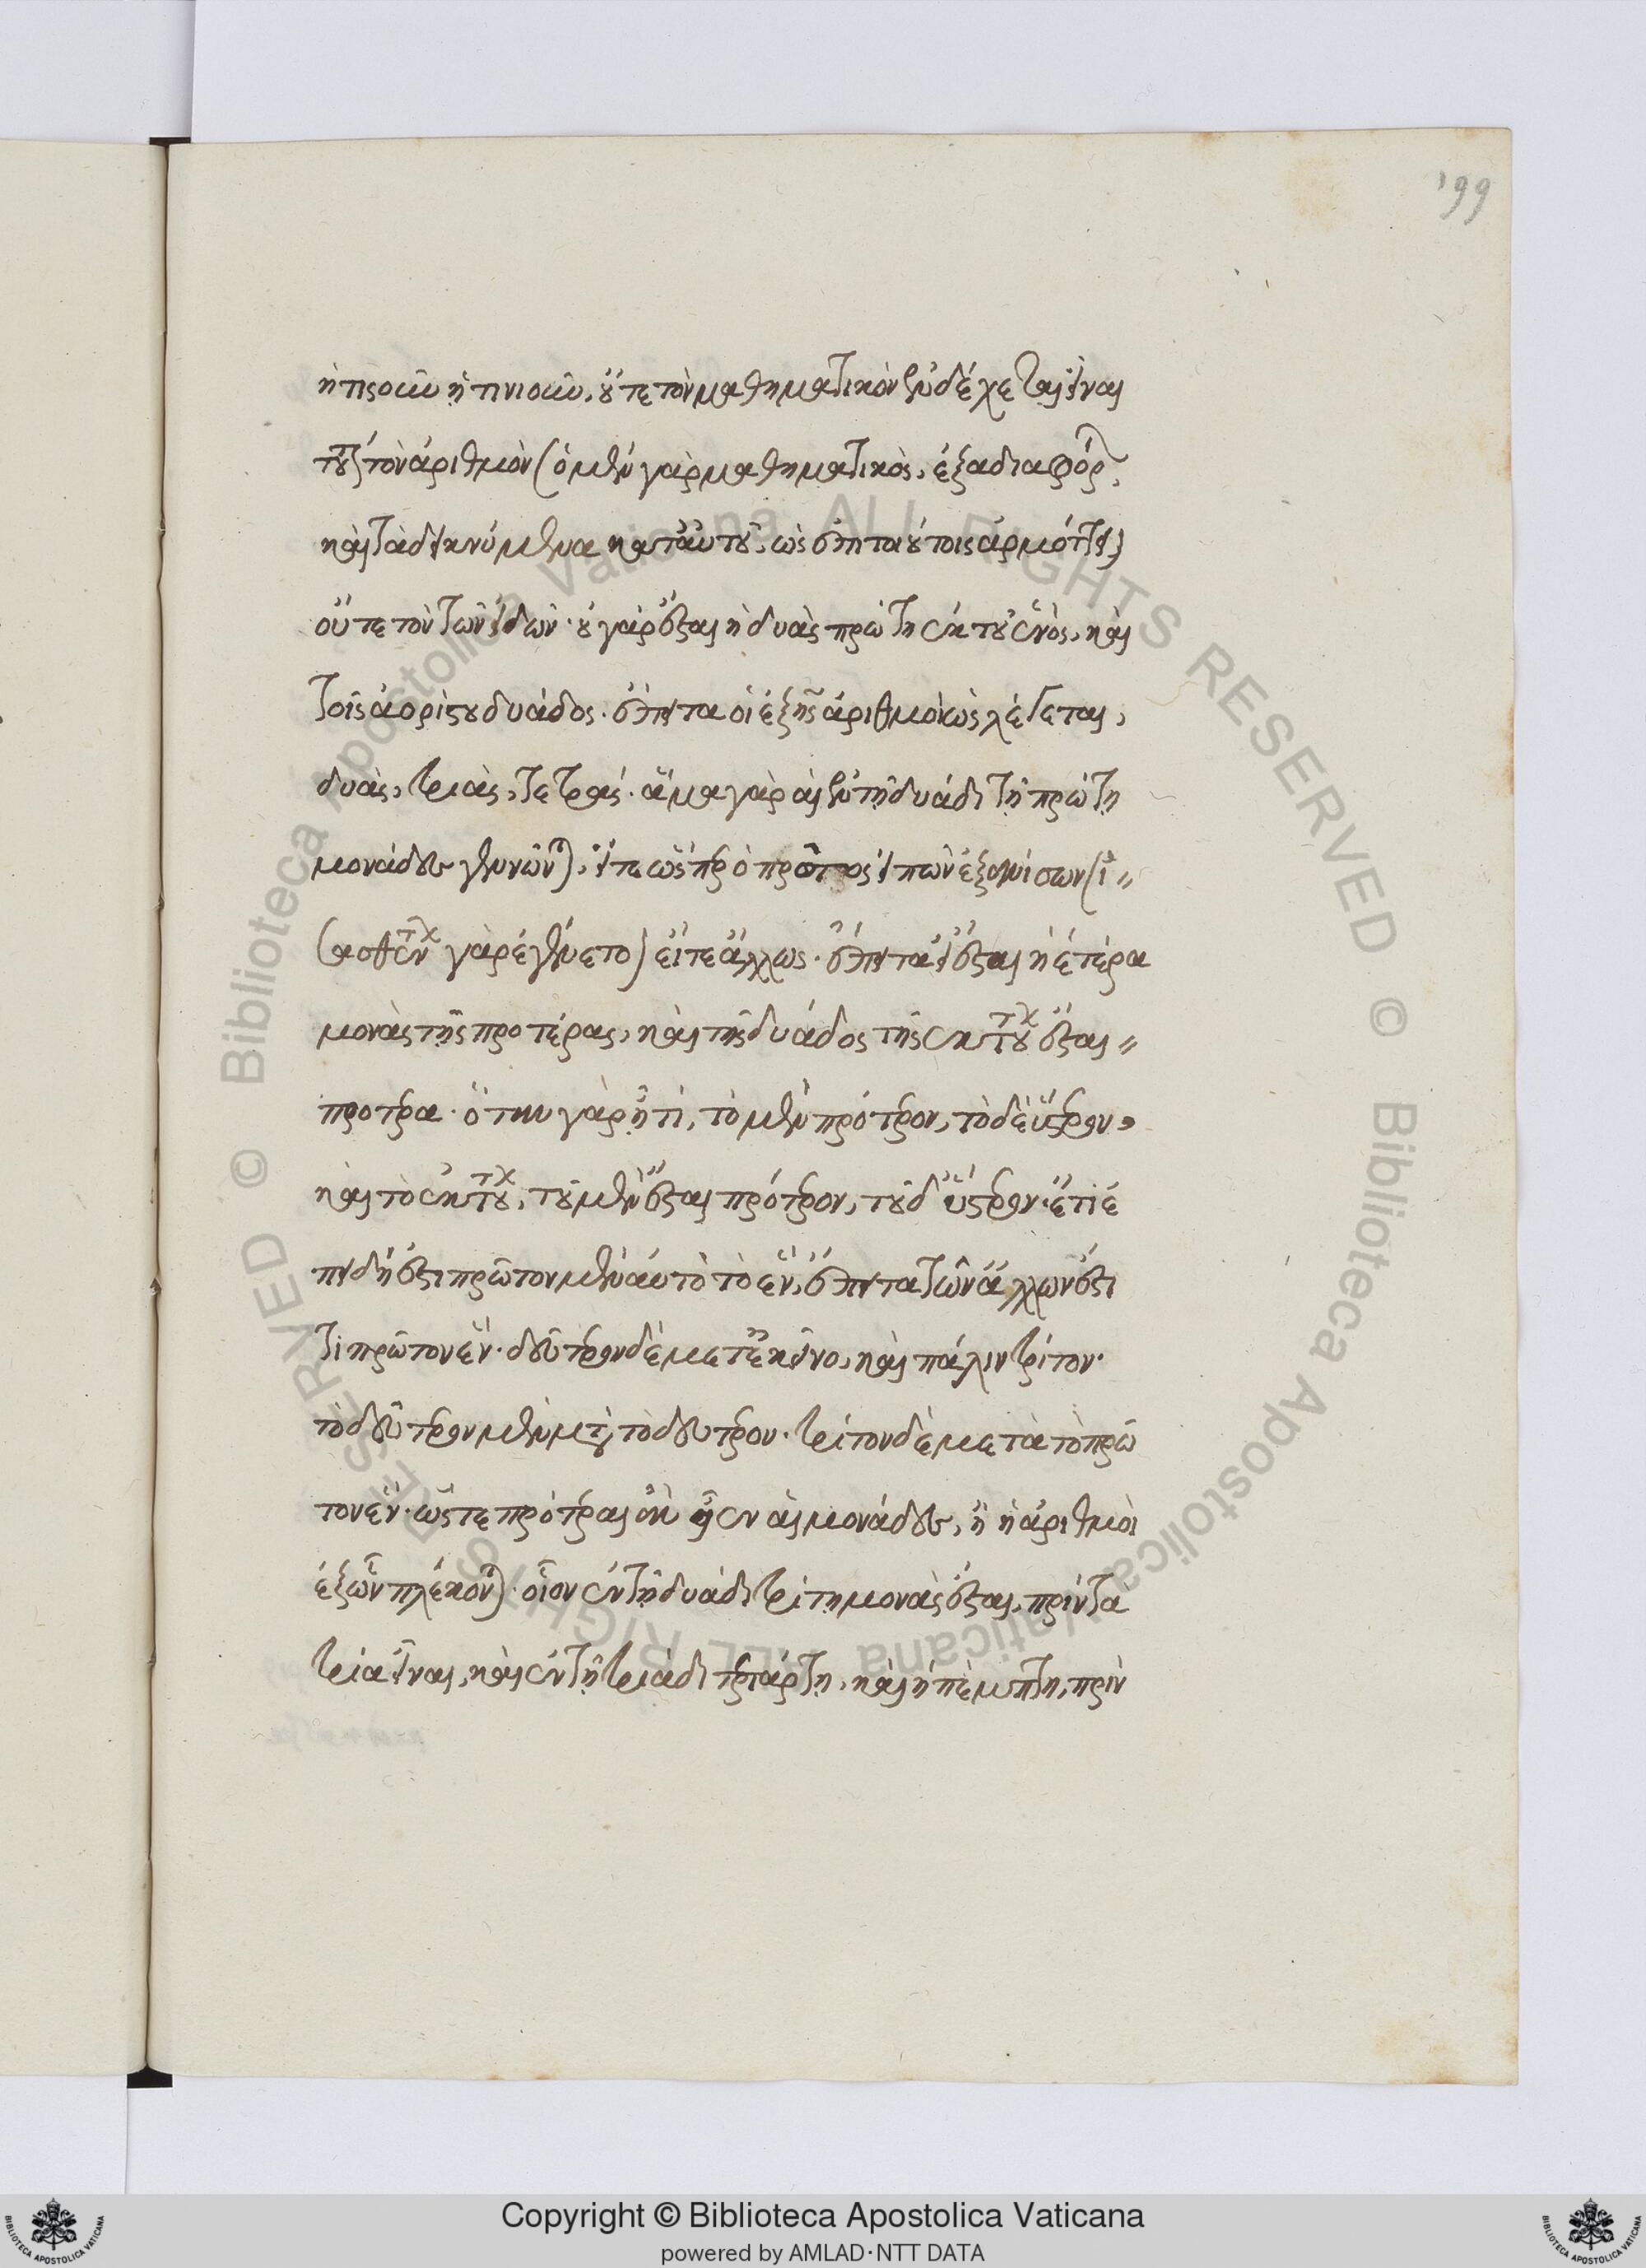 199
ἡτισοῦν ᾗτινιοῦν, οὔτε τὸν μαθηματικὸν ἐνδέχεται εἶναι
τοῦτον τὸν ἀριθμὸν (ὁ μὲν γὰρ μαθηματικὸς, ἐξ ἀδιαφόρων,
καὶ τὰ δεικνύμενα κατ' αὐτοῦ, ὡς ἐπὶ τοιούτοις ἁρμόττει)
οὔτε τὸν τῶν εἰδῶν· οὐ γὰρ ἔσται ἡ δυὰς πρώτη ἐκ τοῦ ἑνὸς, καὶ
τοῖς ἀορίστου δυάδος. ἔπειτα οἱ ἑξῆς ἀριθμοὶ ὡς λέγεται,
δυὰς, τριὰς, τετράς. ἅμα γὰρ αἱ ἐν τῇ δυάδι τῇ πρώτῃ
μονάδες γεννῶνται, εἴτε ὥσπερ ὁ πρῶτος εἰπὼν ἐξ ἀνίσων (ἰ-
σασθέντων γὰρ ἐγένετο) εἴτε ἄλλως. ἔπειτα εἰ ἔσται ἡ ἑτέρα
μονὰς τῆς προτέρας, καὶ τῆς δυάδος τῆς ἐκ τούτων ἔσται
προτέρα. ὅταν γὰρ ᾖ τι, τὸ μὲν πρότερον, τὸ δὲ ὕστερον,
καὶ τὸ ἐκ τούτων, τοῦ μὲν ἔσται πρότερον, τοῦ δ' ὕστερον. ἔτι ἐ
πειδή ἐστι πρῶτον μὲν αὐτὸ τὸ ἕν, ἔπειτα τῶν ἄλλων ἐστί
τι πρῶτον ἕν. δεύτερον δὲ μετ' ἐκεῖνο, καὶ πάλιν τρίτον.
τὸ δεύτερον μὲν μετὰ τὸ δεύτερον. τρίτον δὲ μετὰ τὸ πρῶ
τον ἕν. ὥστε πρότεραι ἂν εἶεν αἱ μονάδες, ἢ ἡ ἀριθμοὶ
ἐξ ὧν πλέκονται. οἷον ἐν τῇ δυάδι τρίτη μονὰς ἔσται, πρὶν τὰ
τρία εἶναι, καὶ ἐν τῇ τριάδι τετάρτη, καὶ ἡ πέμπτη, πρὶν
Copyright © Biblioteca Apostolica Vaticana
powered by AMLAD·NTT DATA